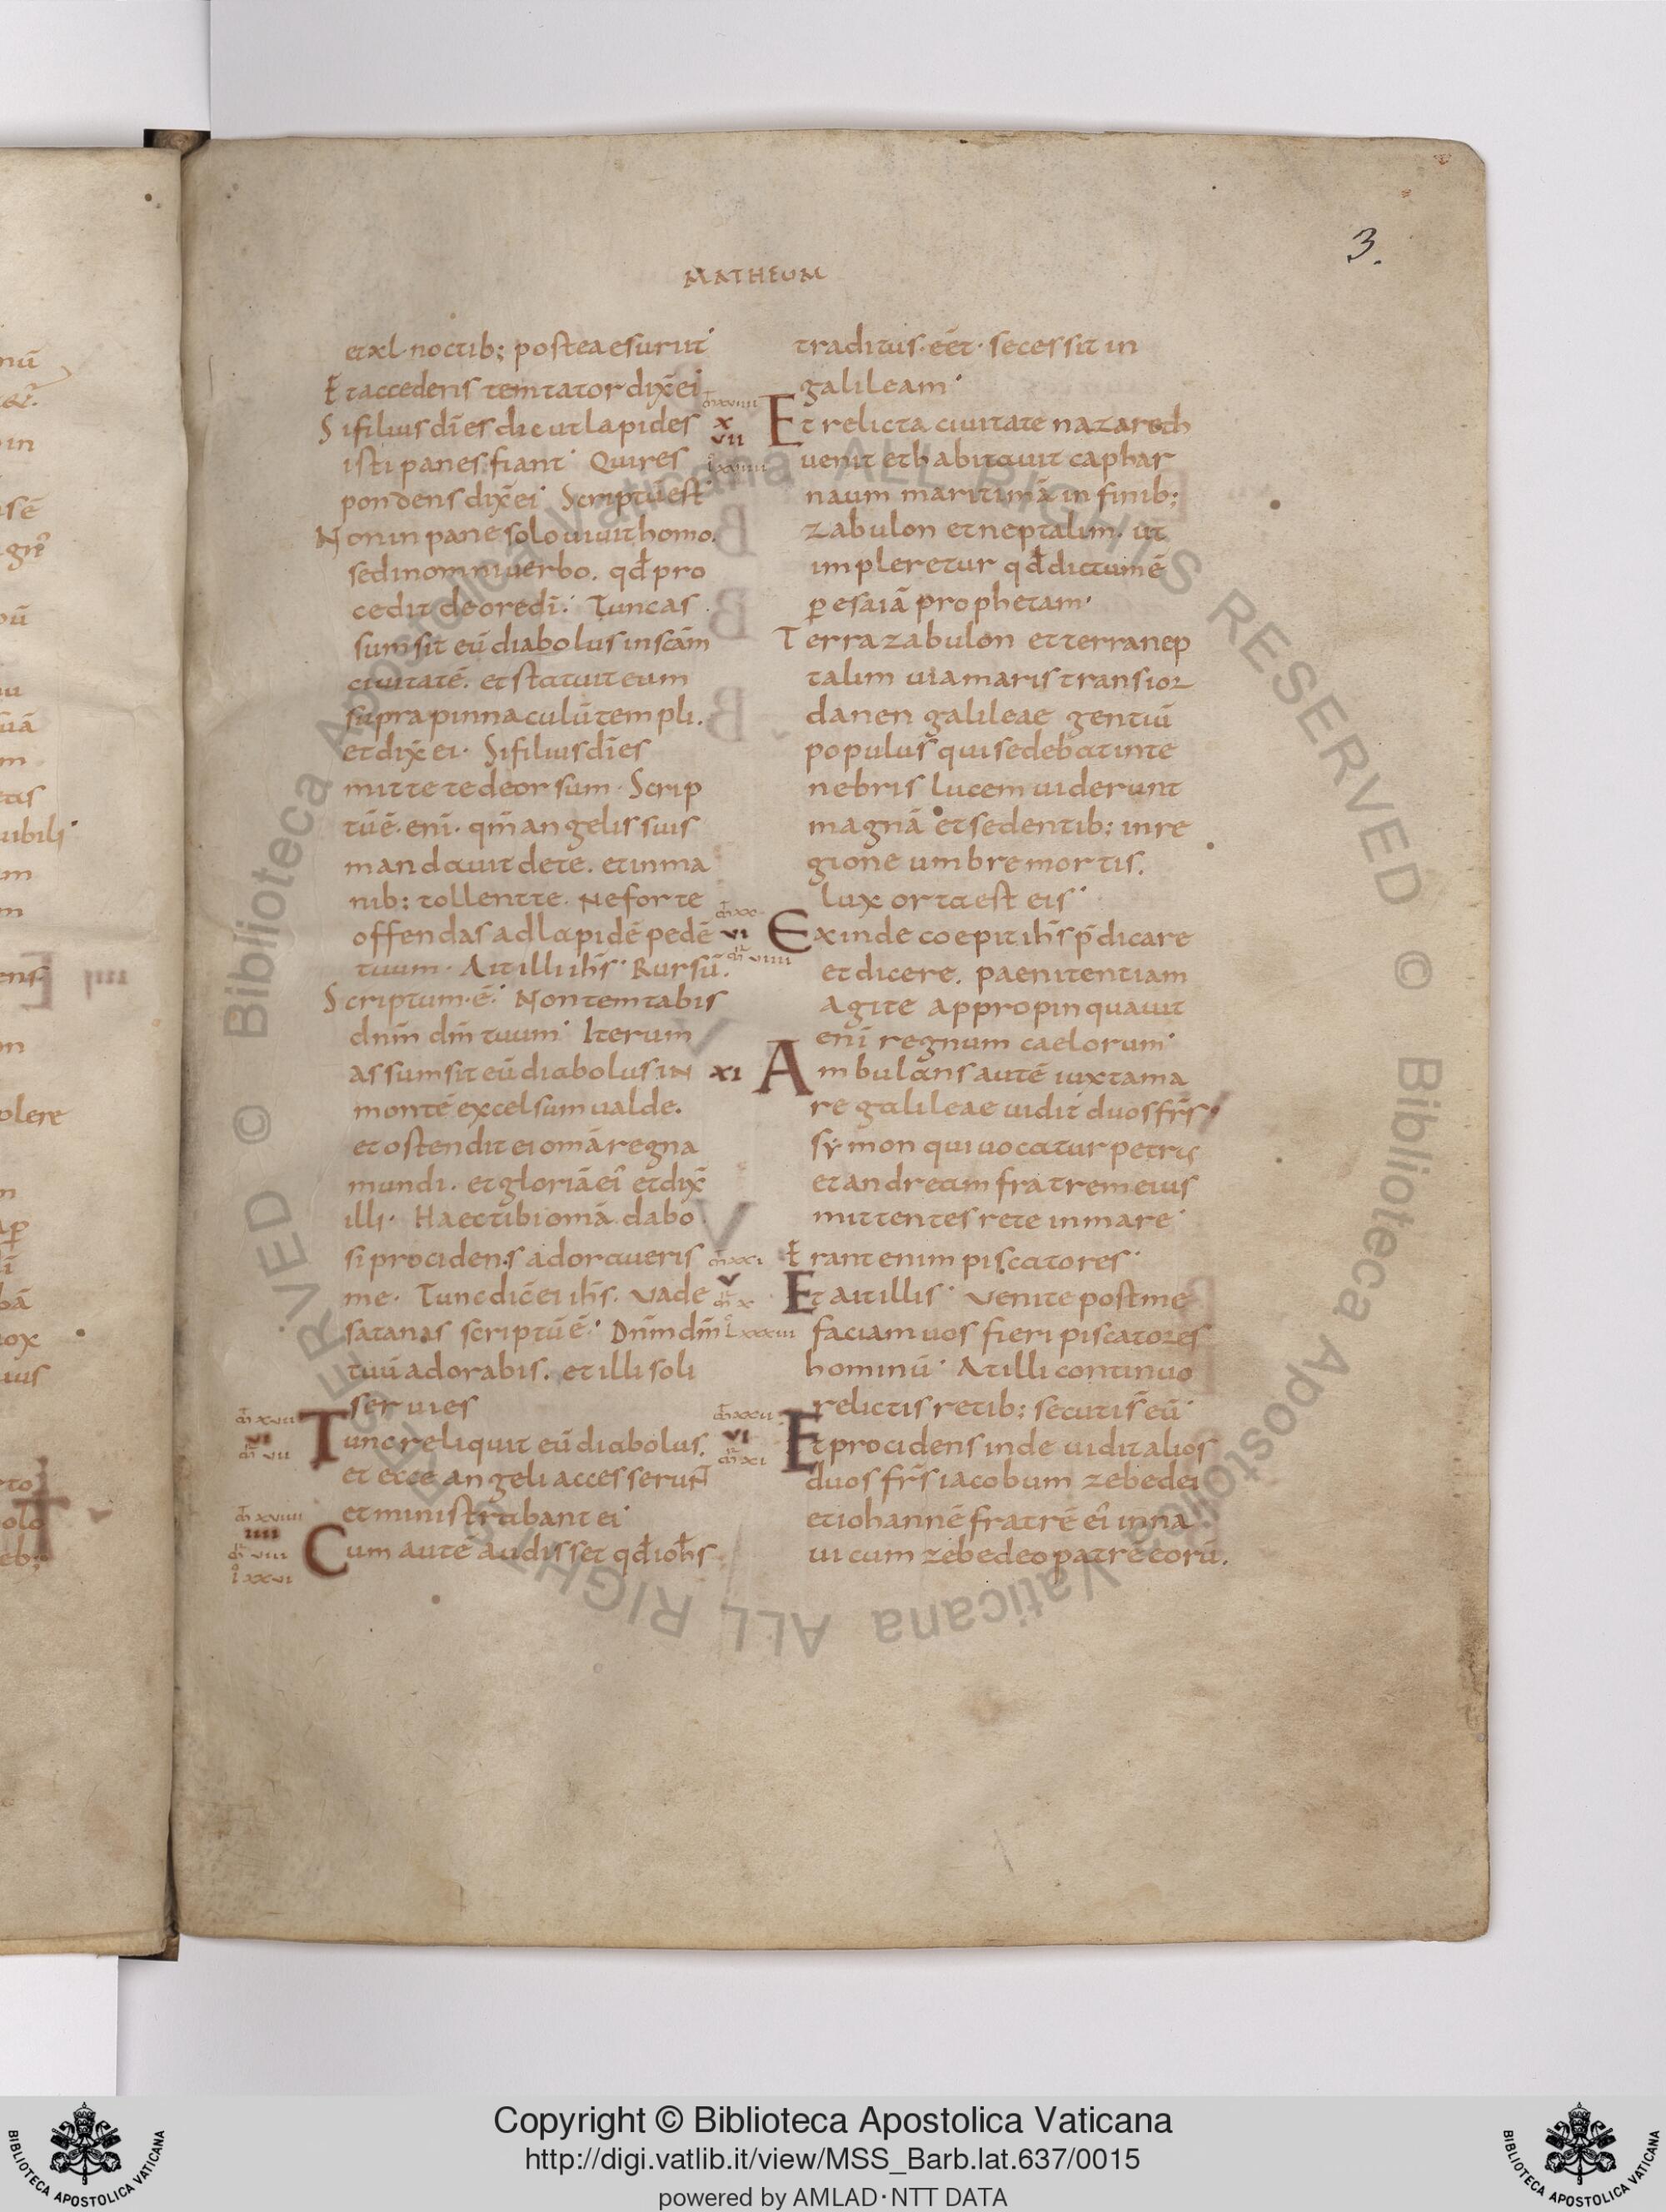 3.
MATHEUM
etxl·noctib; postea esuriit
Et accedens temtator dix̄ ei
Si filius dī es dic ut lapides
isti panes fiant· Qui res
pondens dix̄ ei· Scriptū est
Non in pane solo uiuit homo.
sed in omni uerbo. qđ pro
cedit de ore dī· Tunc as
sumsit eū diabolus in sc̄am
ciuitatē. et statuit eum
supra pinnaculū templi.
et dix̄ ei· Si filius dī es
mitte te deorsum· Scrip
tū ē· enī· qm̄ angelis suis
mandauit de te. et in ma
nib; tollent te. Ne forte
offendas ad lapidē pedē
tuum· Ait illi ihs̄· Rursū·
Scriptum·ē· Non temtabis
dnm̄ dm̄ tuum· Iterum
assumsit eū diabolus IN
montē excelsum ualde.
et ostendit ei omā regna
mundi. et gloriā eī et dix̄
illi· Haec tibi omā dabo
si procidens adoraueris
me· Tunc dic̄ ei ihs̄. Vade
satanas scriptū ē· Dnm̄ dm̄
tuū adorabis. et illi soli
seruies
Tunc reliquit eū diabolus.
et ecce angeli accesserunt
et ministrabant ei·
Cum autē audisset qđ iohs̄
traditus·eēt· secessit in
galileam·
X Et relicta ciuitate nazareth
VII
uenit et habitauit caphar
naum maritimā in finib;
zabulon et neptalim. ut
impleretur qđ dictum ē
p̱ esaiā prophetam·
Terra zabulon et terra nep
talim uia maris trans ior
danen galileae gentiū
populus qui sedebat in te
nebris lucem uiderunt
magnā et sedentib; in re
gione umbre mortis.
lux orta est eis·
VI Exinde coepit ihs̄ p̄dicare
et dicere. paenitentiam
agite appropinquauit
enī regnum caelorum·
XI Ambulans autē iuxta ma
re galileae uidit duos frs̄
symon qui uocatur petrus
et andream fratrem eius
mittentes rete in mare·
Erant enim piscatores·
V Et ait illis· Venite post me
faciam uos fieri piscatores
hominū· At illi continuo
relictis retib; secuti s̄ eū·
VI Et procidens inde uidit alios
duos frs̄ iacobum zebedei
et iohannē fratrē eī in na
ui cum zebedeo patre eorū.
© Biblioteca Apostolica Vaticana ALL RIGHTS RESERVED © Biblioteca Apostolica Vaticana ALL RIGHTS RESERVED
Copyright © Biblioteca Apostolica Vaticana
http://digi.vatlib.it/view/MSS_Barb.lat.637/0015
powered by AMLAD·NTT DATA
BIBLIOTECA APOSTOLICA VATICANA
BIBLIOTECA APOSTOLICA VATICANA